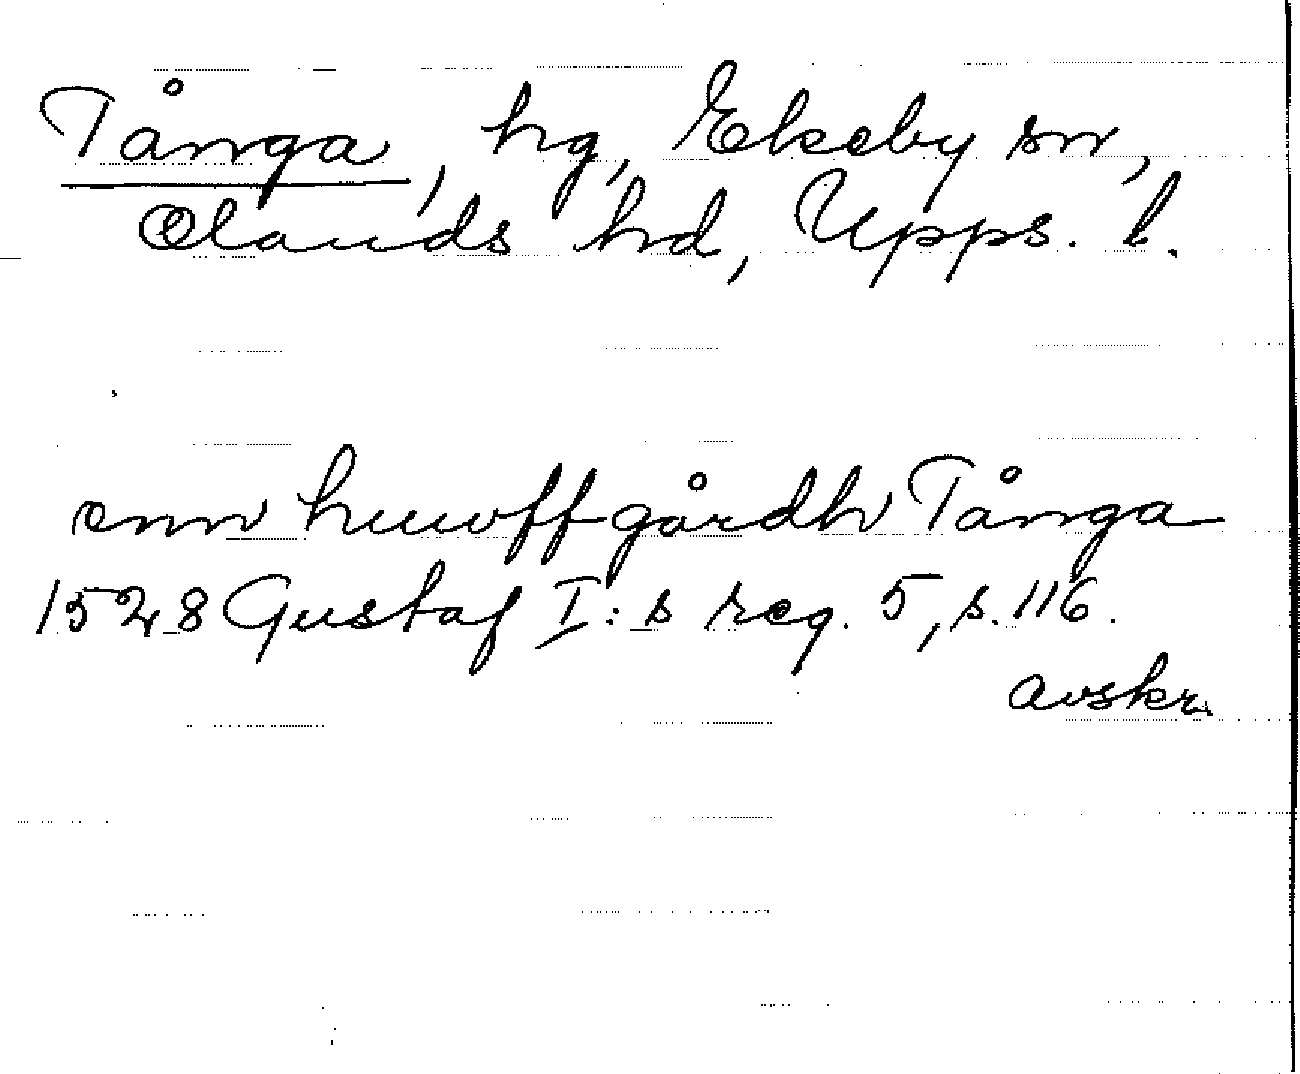 Tånga, hg, Ekeby sn,
Olands hd, Upps. l.
enn huwffgårdh Tånga
1528 Gustaf I:s reg. 5, s. 116.
avskr.